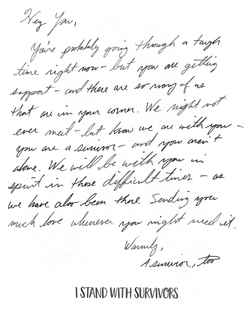 Hey You,
You're probably going through a tough
time right now - but you are getting
support - and there are so many of us
that are in your corner. We might not
ever meet - but know we are with you -
you are a survivor - and you aren't
alone. We will be with you in
spirit in these difficult times - as
we have also been there. Sending you
much love whenever you might need it.
Warmly,
A survivor, too
I STAND WITH SURVIVORS